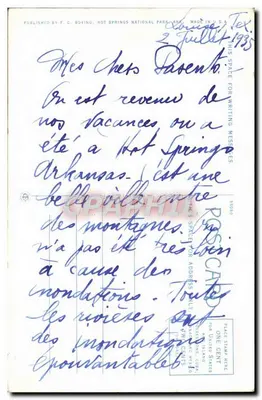 PUBLISHED BY HOT SPRINGS NATIONAL PARK
Tex.
2 Juillet 1935
Mes chers Parents.
On est revenu de
nos vacances, on a
été à Hot Springs
Arkansas. C'est une
belle ville entre
des montagnes. On
n'a pas été très loin
à cause des
inondations. Toutes
les rivières ont
des inondations
épouvantables.
THIS SPACE FOR WRITING MESSAGES
POST CARD
PLACE STAMP HERE
ONE CENT